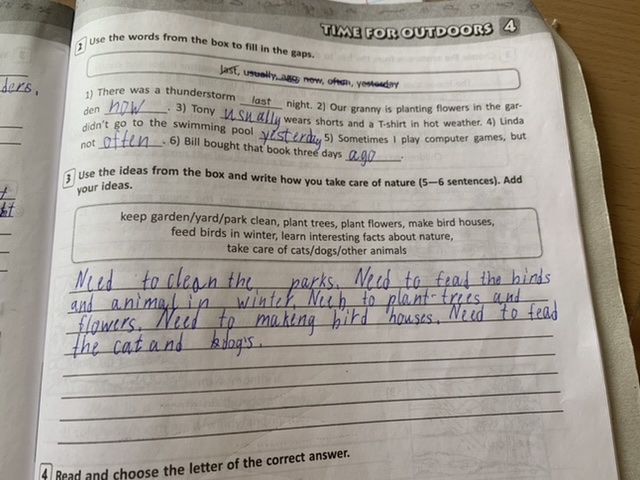 TIME FOR OUTDOORS 4
2 Use the words from the box to fill in the gaps.
last, usually, ago, now, often, yesterday
1) There was a thunderstorm last night. 2) Our granny is planting flowers in the gar-
den now. 3) Tony usually wears shorts and a T-shirt in hot weather. 4) Linda
didn't go to the swimming pool yesterday 5) Sometimes I play computer games, but
not often. 6) Bill bought that book three days ago.
3 Use the ideas from the box and write how you take care of nature (5–6 sentences). Add
your ideas.
keep garden/yard/park clean, plant trees, plant flowers, make bird houses,
feed birds in winter, learn interesting facts about nature,
take care of cats/dogs/other animals
Need to clean the parks. Need to fead the binds
and animal in winter. Neeb to plant-trees and
flowers. Need to making bird houses. Need to fead
the cat and dog's.
4 Read and choose the letter of the correct answer.
ders,